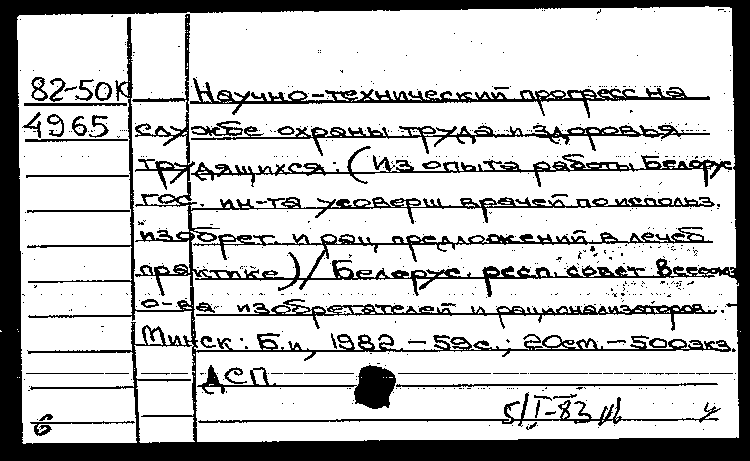 82-50К
4965
Научно-технический прогресс на
службе охраны труда и здоровья
трудящихся: (Из опыта работы Белорус.
гос. ин-та усоверш. врачей по использ.
изобрет. и рац. предложений в лечеб.
практике) / Белорус. респ. совет Всесоюз.
о-ва изобретателей и рационализаторов. -
Минск: Б.и, 1982. - 59с.; 20см. - 500экз.
ДСП.
5/I-83
б